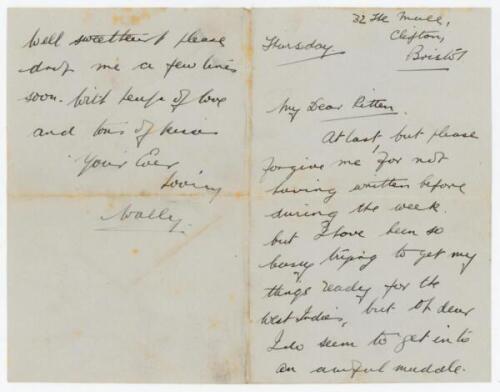 32 The Mall,
Clifton,
Bristol
Thursday
My Dear Kitten.
At last, but please
forgive me for not
having written before
during the week.
but I have been so
busy trying to get my
things ready for the
West Indies, but Oh dear
I do seem to get into
an awful muddle.
Well sweetheart please
drop me a few lines
soon. With heaps of love
and tons of kisses
Your Ever
Loving
Wally.